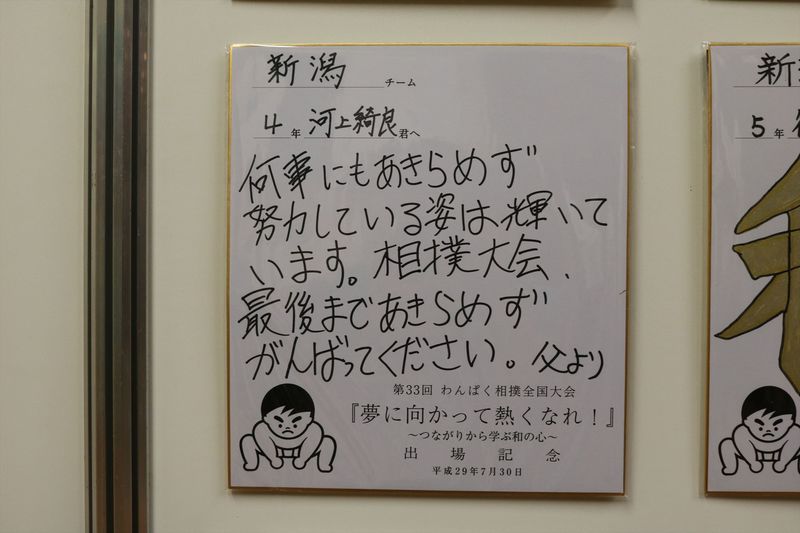 新潟 チーム
4年 河上綺良君へ
何事にもあきらめず
努力している姿は輝いて
います。相撲大会、
最後まであきらめず
がんばってください。父より
第33回 わんぱく相撲全国大会
『夢に向かって熱くなれ!』
~つながりから学ぶ和の心~
出場記念
平成29年7月30日
新
5年